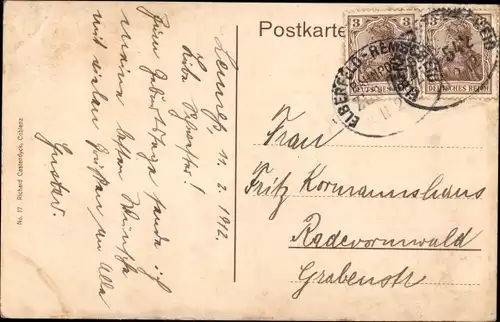 Postkarte
3
3
DEUTSCHES REICH
DEUTSCHES REICH
ELBERFELD-REMSCHEID
BAHNPOST
542
Lennep 11. 2. 1912.
Liebe Schwester!
Zum Geburtstage sende ich
meine besten Wünsche
mit vielen Grüßen an Alle
Gustav.
Frau
Fritz Kormannshaus
Radevormwald
Grabenstr
No. 17 Richard Castendyck, Coblenz